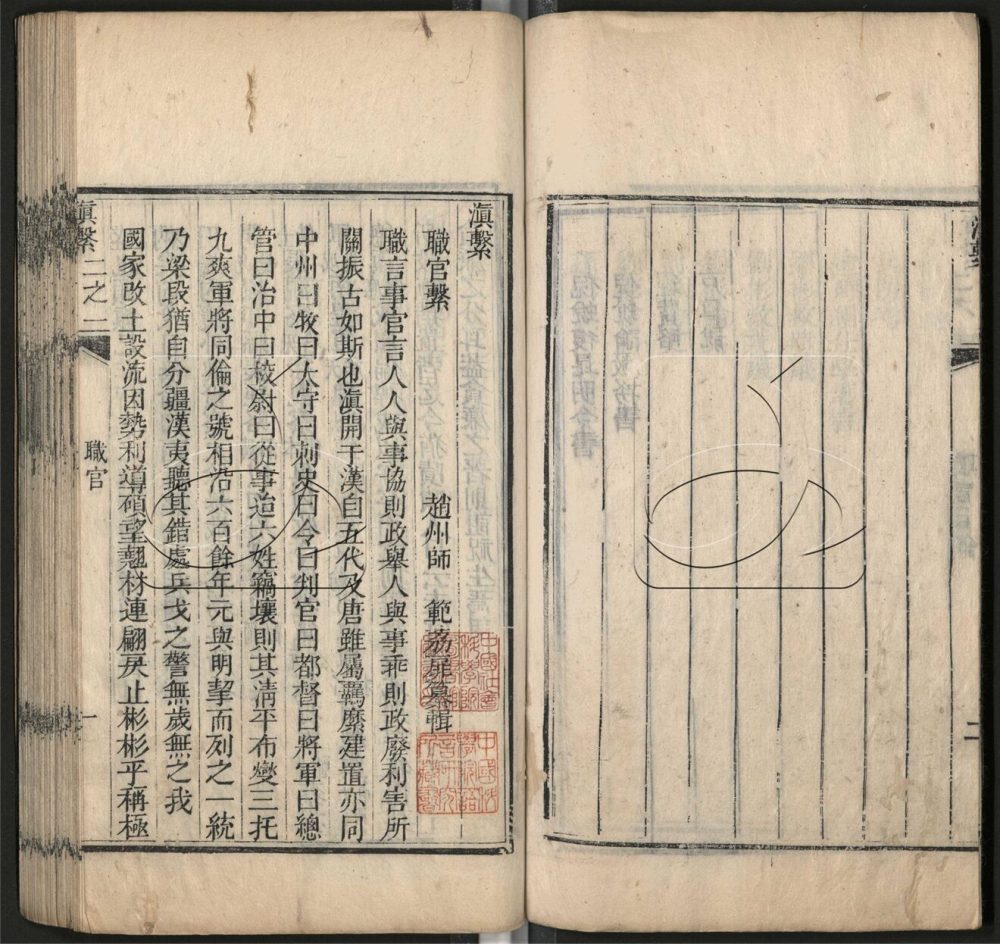 滇繫
職官繫
趙州師　範荔扉纂輯
職言事官言人人與事協則政舉人與事乖則政廢利害所
關振古如斯也滇開于漢自五代及唐雖屬羈縻建置亦同
中州曰牧曰太守曰刺史曰令曰判官曰都督曰將軍曰總
管曰治中曰校尉曰從事迨六姓竊壤則其淸平布燮三托
九爽軍將同倫之號相沿六百餘年元與明挈而列之一統
乃梁段猶自分疆漢夷聽其錯處兵戈之警無歲無之我
國家改土設流因勢利導碩望翹材連翩戾止彬彬乎稱極
滇繫　二之二　職官　一